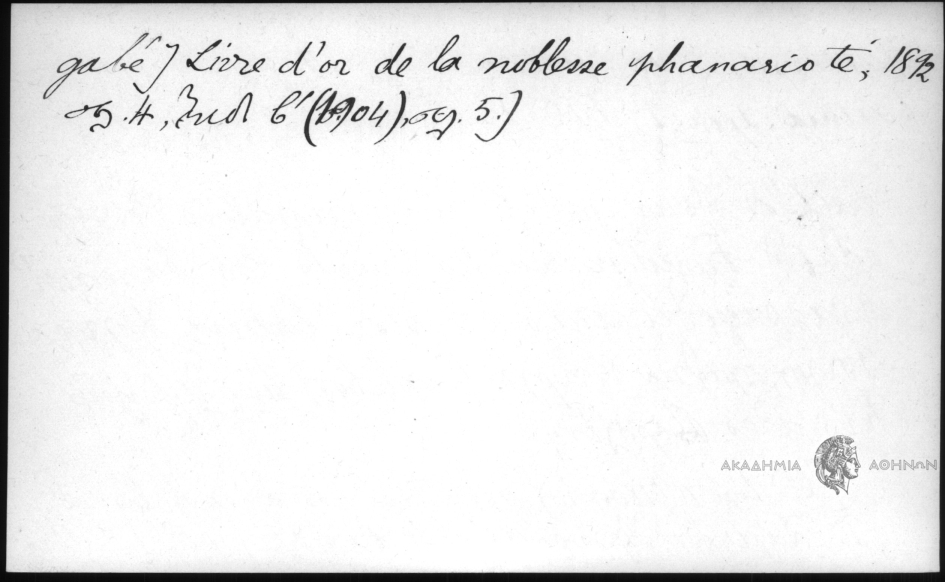 gabé] Livre d'or de la noblesse phanariote, 1892
σελ. 4, ἔκδ. β' (1904), σελ. 5.]
ΑΚΑΔΗΜΙΑ ΑΘΗΝΩΝ